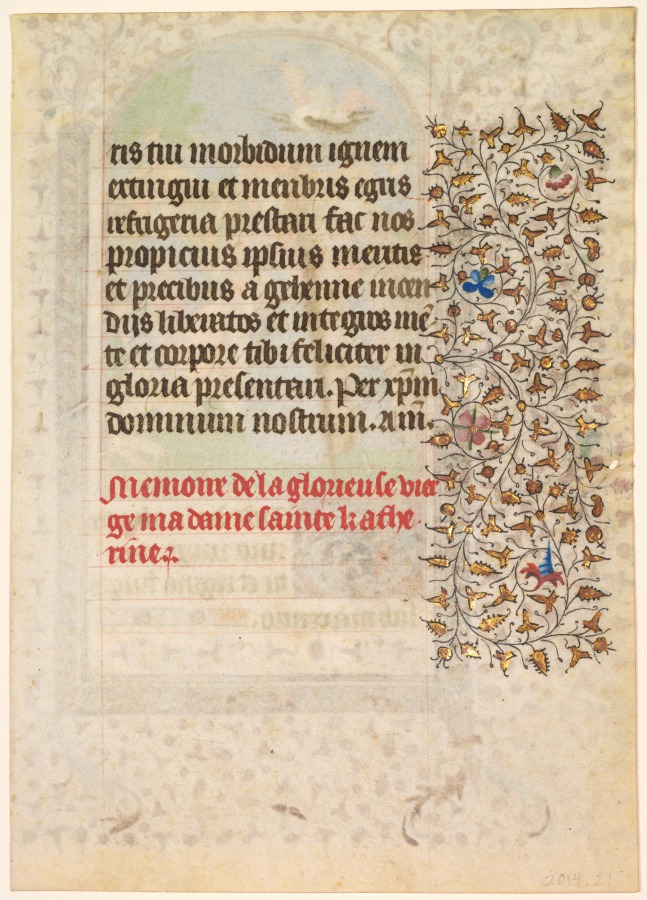 ris tui morbidum ignem
extingui et menbris egris
refrigeria prestari fac nos
propicius ipsius meritis
et precibus a gehenne incen
dijs liberatos et integros mē
te et corpore tibi feliciter in
gloria presentari. Per xp̄m
dominum nostrum. Am̄.
Memoire de la glorieuse vier
ge ma dame sainte kathe
rine.